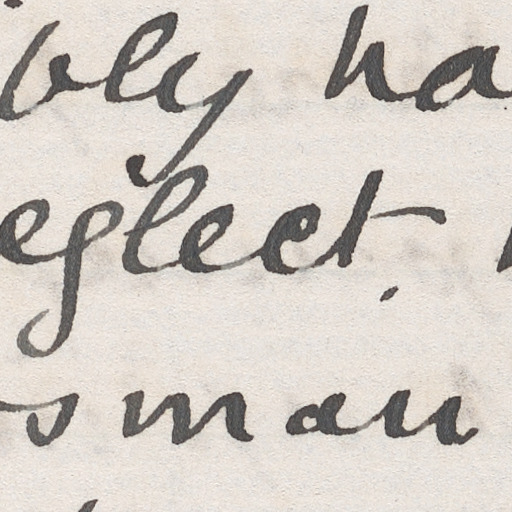 bly ha
eglect.
sman